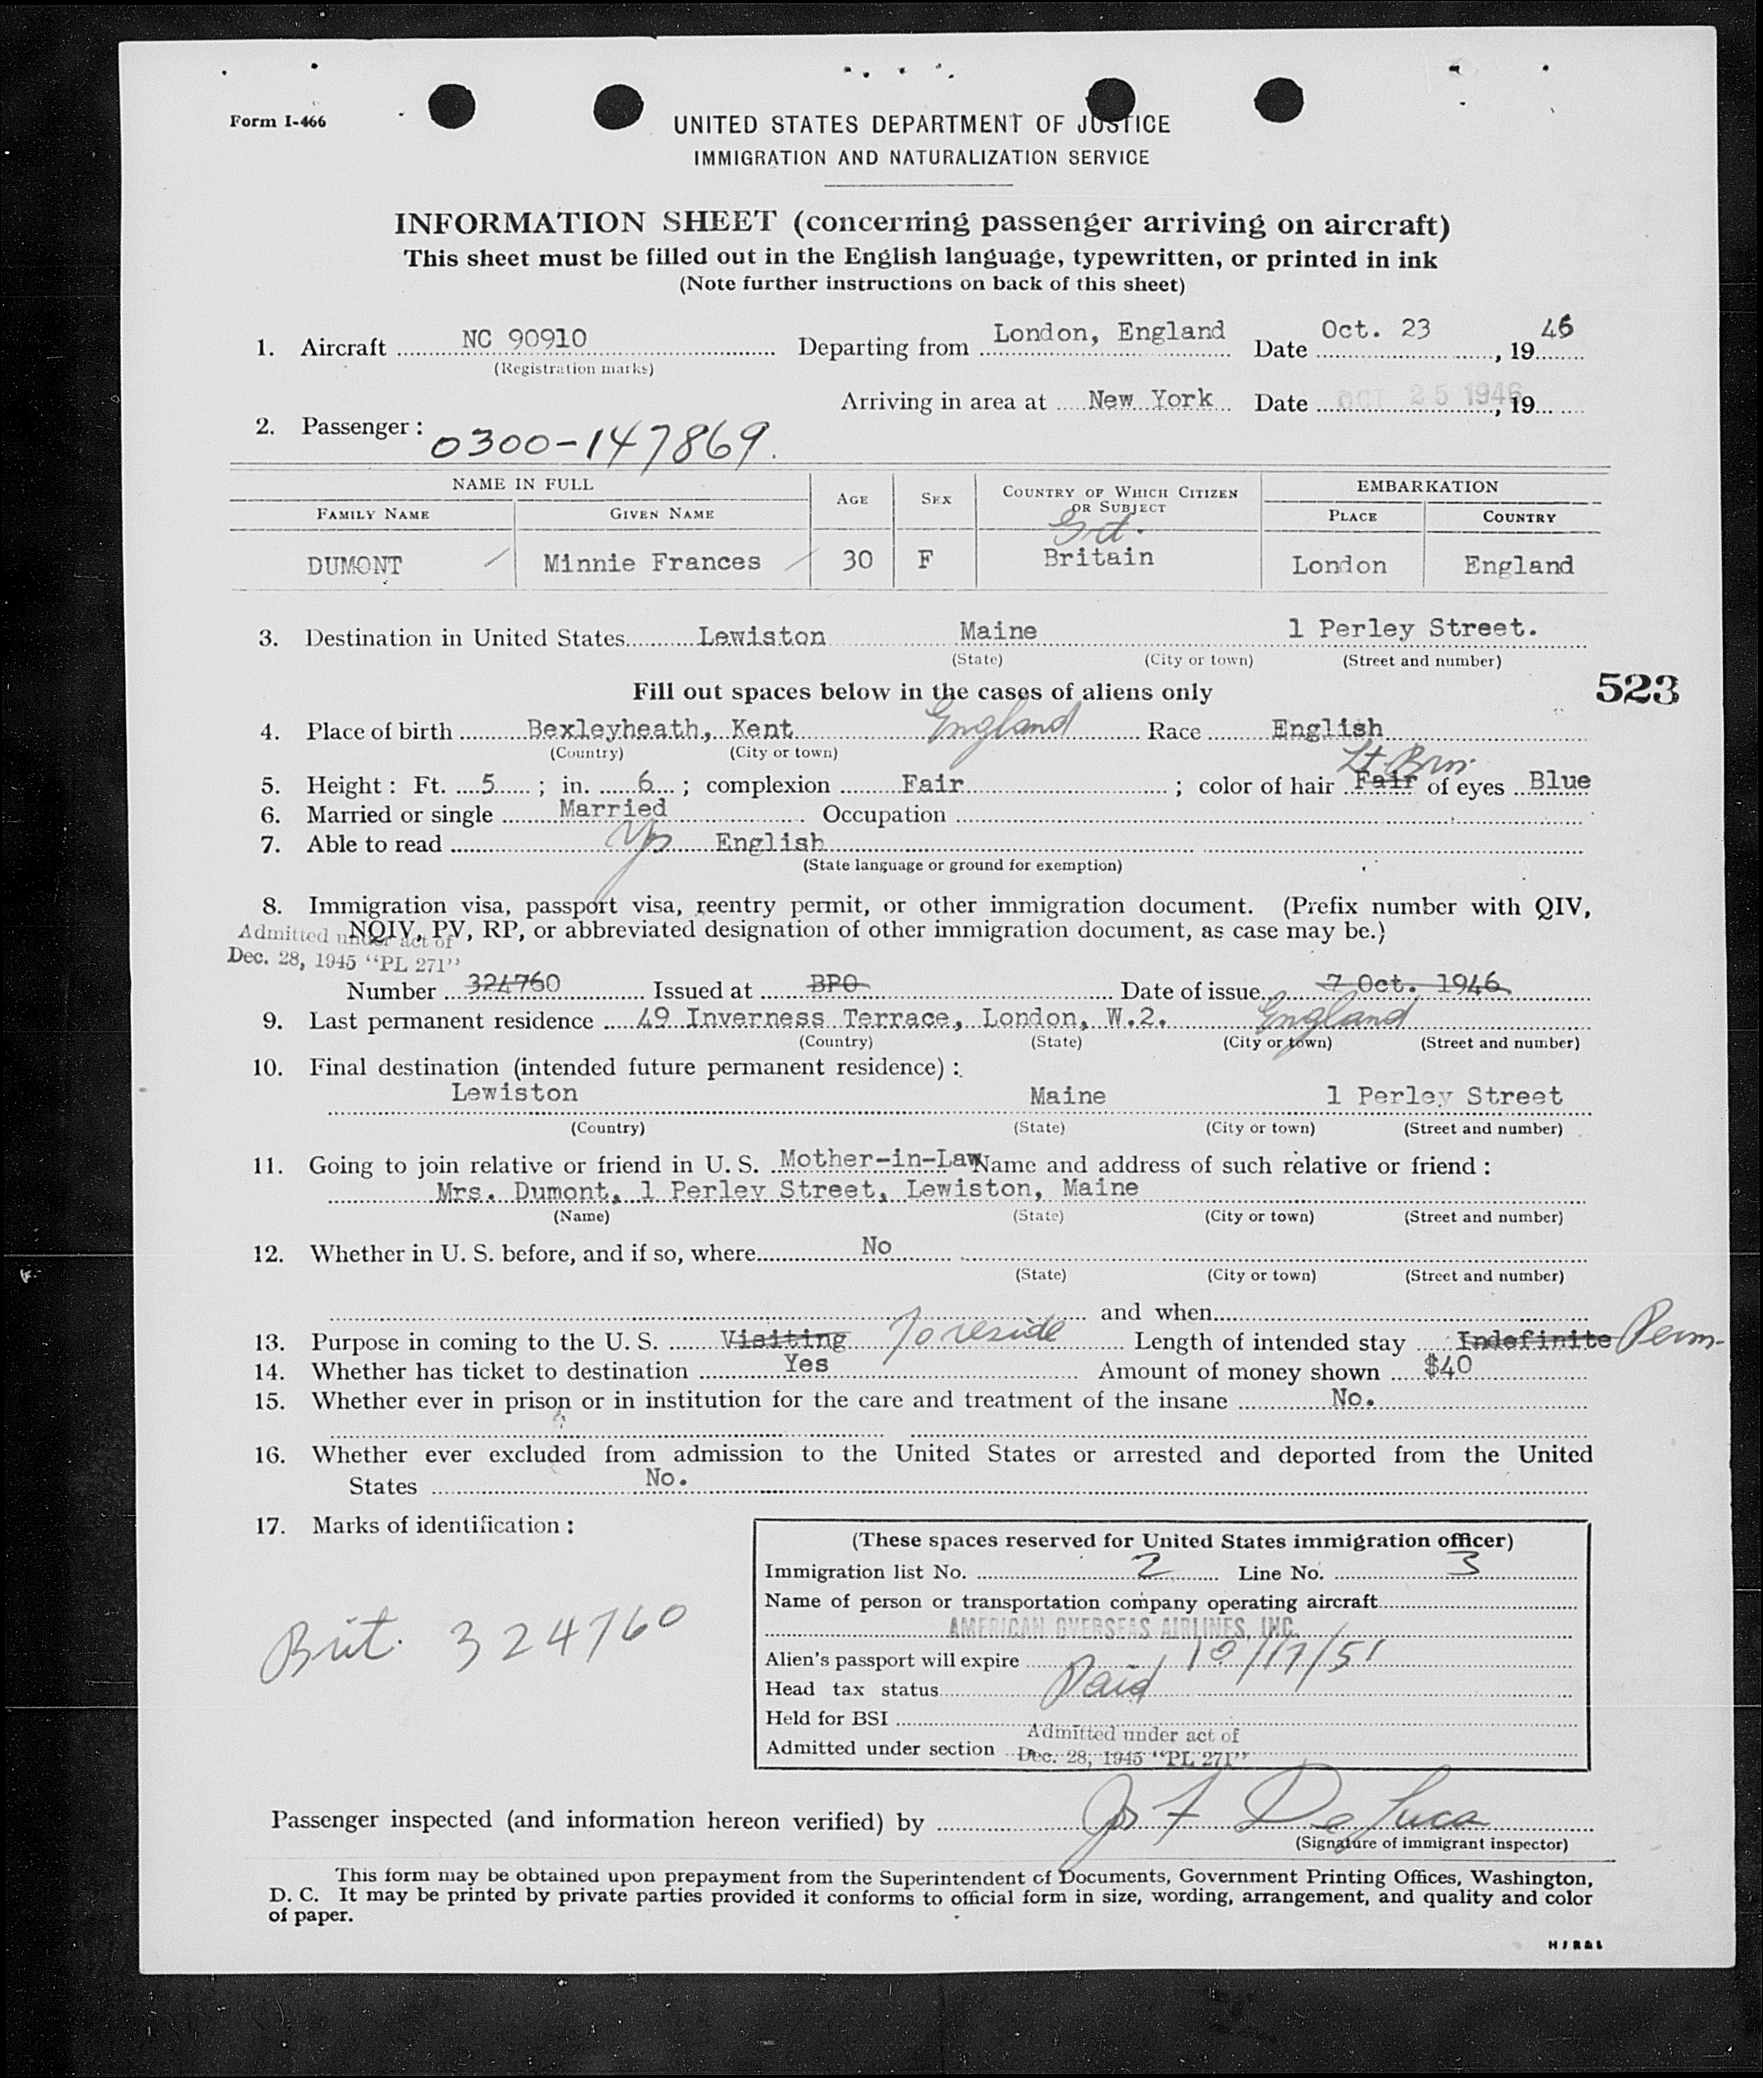 Form I-466
UNITED STATES DEPARTMENT OF JUSTICE
IMMIGRATION AND NATURALIZATION SERVICE
INFORMATION SHEET (concerning passenger arriving on aircraft)
This sheet must be filled out in the English language, typewritten, or printed in ink
(Note further instructions on back of this sheet)
1. Aircraft NC 90910 Departing from London, England Date Oct. 23, 1946
(Registration marks)
Arriving in area at New York Date OCT 25 1946, 19
2. Passenger: 0300-147869.
NAME IN FULL AGE SEX COUNTRY OF WHICH CITIZEN OR SUBJECT EMBARKATION
FAMILY NAME GIVEN NAME PLACE COUNTRY
Gt.
DUMONT Minnie Frances 30 F Britain London England
3. Destination in United States Lewiston Maine 1 Perley Street.
(State) (City or town) (Street and number)
Fill out spaces below in the cases of aliens only
523
4. Place of birth Bexleyheath, Kent England Race English
(Country) (City or town)
Lt. Brn.
5. Height: Ft. 5; in. 6; complexion Fair; color of hair Fair of eyes Blue
6. Married or single Married Occupation
7. Able to read Yes English
(State language or ground for exemption)
8. Immigration visa, passport visa, reentry permit, or other immigration document. (Prefix number with QIV,
NQIV, PV, RP, or abbreviated designation of other immigration document, as case may be.)
Admitted under act of
Dec. 28, 1945 "PL 271"
Number 324760 Issued at BPO Date of issue 7 Oct. 1946
9. Last permanent residence 49 Inverness Terrace, London, W.2. England
(Country) (State) (City or town) (Street and number)
10. Final destination (intended future permanent residence):
Lewiston Maine 1 Perley Street
(Country) (State) (City or town) (Street and number)
11. Going to join relative or friend in U. S. Mother-in-Law Name and address of such relative or friend:
Mrs. Dumont, 1 Perley Street, Lewiston, Maine
(Name) (State) (City or town) (Street and number)
12. Whether in U. S. before, and if so, where No
(State) (City or town) (Street and number)
and when
13. Purpose in coming to the U. S. Visiting To reside Length of intended stay Indefinite Perm.
14. Whether has ticket to destination Yes Amount of money shown $40
15. Whether ever in prison or in institution for the care and treatment of the insane No.
16. Whether ever excluded from admission to the United States or arrested and deported from the United
States No.
17. Marks of identification:
Brit. 324760
(These spaces reserved for United States immigration officer)
Immigration list No. 2 Line No. 3
Name of person or transportation company operating aircraft
AMERICAN OVERSEAS AIRLINES, INC.
Alien's passport will expire 10/17/51
Head tax status Paid
Held for BSI
Admitted under act of
Admitted under section Dec. 28, 1945 "PL 271"
Passenger inspected (and information hereon verified) by Jos F De Luca
(Signature of immigrant inspector)
This form may be obtained upon prepayment from the Superintendent of Documents, Government Printing Offices, Washington,
D. C. It may be printed by private parties provided it conforms to official form in size, wording, arrangement, and quality and color
of paper.